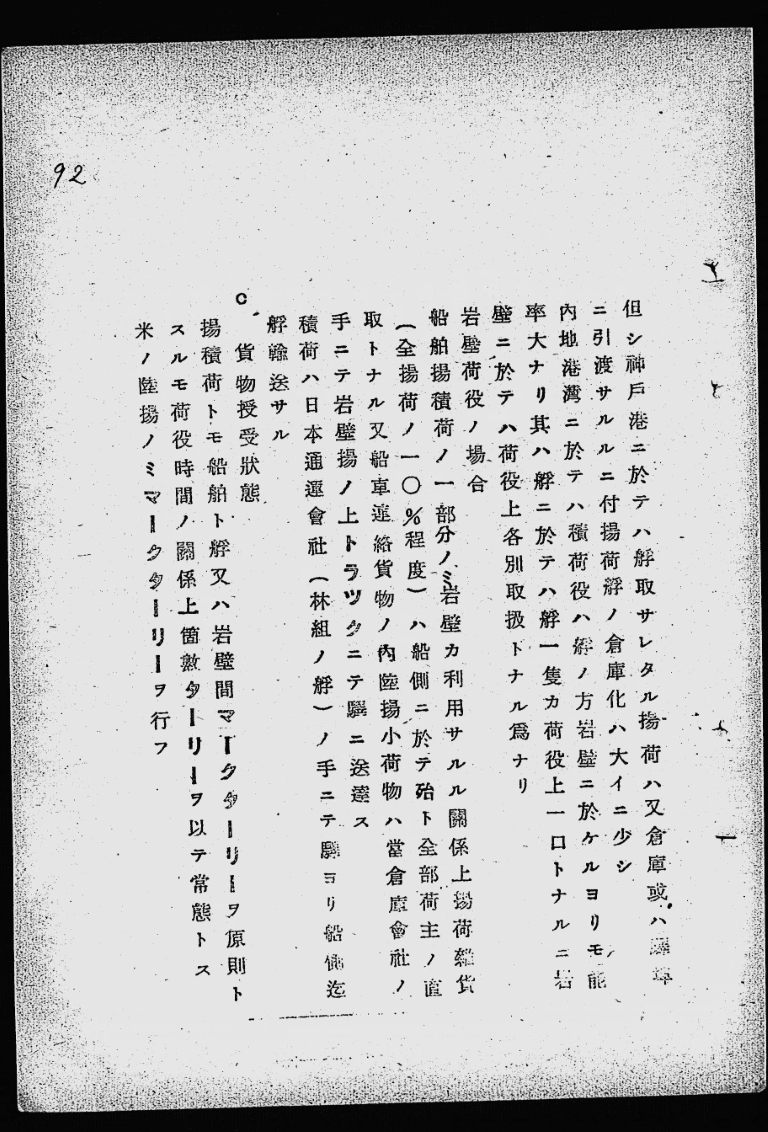 92
但シ神戸港ニ於テハ艀取サレタル揚荷ハ又倉庫或ハ
ニ引渡サルルニ付揚荷艀ノ倉庫化ハ大イニ少シ
内地港湾ニ於テハ積荷役ハ艀ノ方岩壁ニ於ケルヨリモ能
率大ナリ其ハ艀ニ於テハ艀一隻カ荷役上一口トナルニ岩
壁ニ於テハ荷役上各別取扱トナル爲ナリ
岩壁荷役ノ場合
船舶揚積荷ノ一部分ノミ岩壁カ利用サルル關係上揚荷雑貨
(全揚荷ノ一〇%程度)ハ船側ニ於テ殆ト全部荷主ノ直
取トナル又船車連絡貨物ノ内陸揚小荷物ハ當倉庫會社ノ
手ニテ岩壁揚ノ上トラツクニテ驛ニ送達ス
積荷ハ日本通運會社(林組ノ艀)ノ手ニテ驛ヨリ船側迄
艀輸送サル
C. 貨物授受狀態
揚積荷トモ船舶ト艀又ハ岩壁間マークターリーヲ原則ト
スルモ荷役時間ノ關係上箇數ターリーヲ以テ常態トス
米ノ陸揚ノミマークターリーヲ行フ